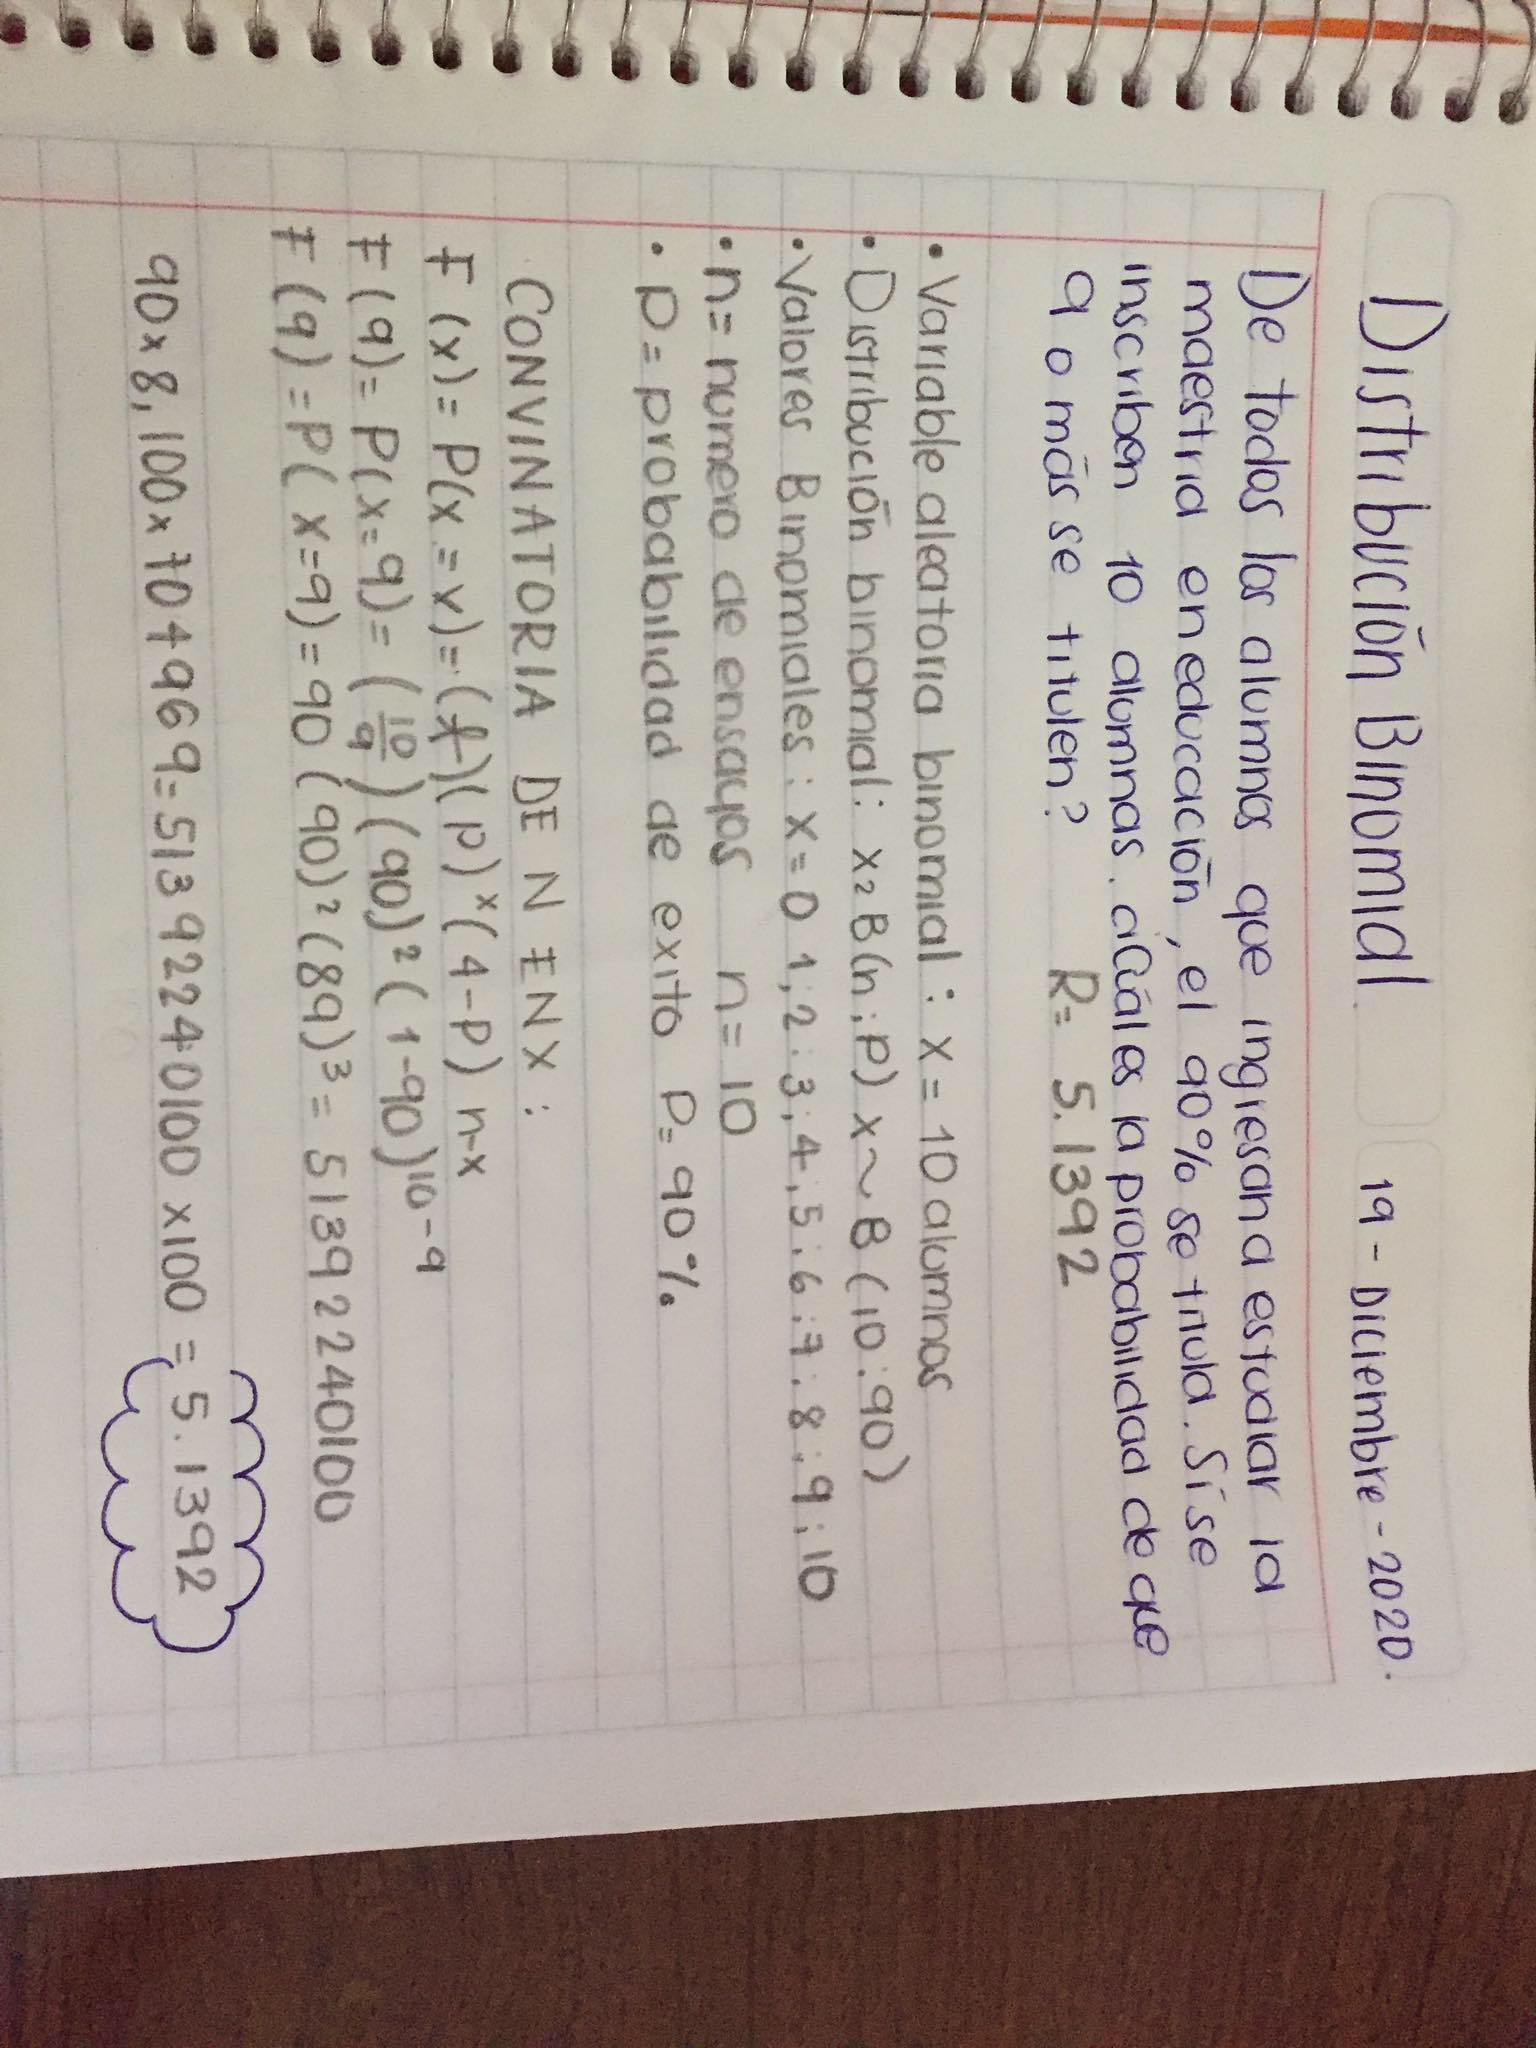 Distribución Binomial
19 - Diciembre - 2020.
De todos los alumnos que ingresan a estudiar la
maestria en educación, el 90% se titula. Si se
inscriben 10 alumnos. ¿Cúal es la probabilidad de que
9 o más se titulen? R= 5.1392
• Variable aleatoria binomial: x = 10 alumnos
• Distribución binomial: x² B(n;P) x~B(10:90)
• Valores Binomiales: x=0 1;2:3;4,5:6:7:8:9:10
• n= numero de ensayos n=10
• p=probabilidad de exito P=90%
CONVINATORIA DE N EN X:
F(x)= P(x=x)= ( )(p)ˣ(1-p)n-x
F(9)= P(x=9)= (10/9)(90)²(1-90)¹⁰⁻⁹
F(9)=P(x=9)=90(90)²(89)³= 5139224010​0
90x8,100x704969=513 9224010​0 x100 = 5.1392